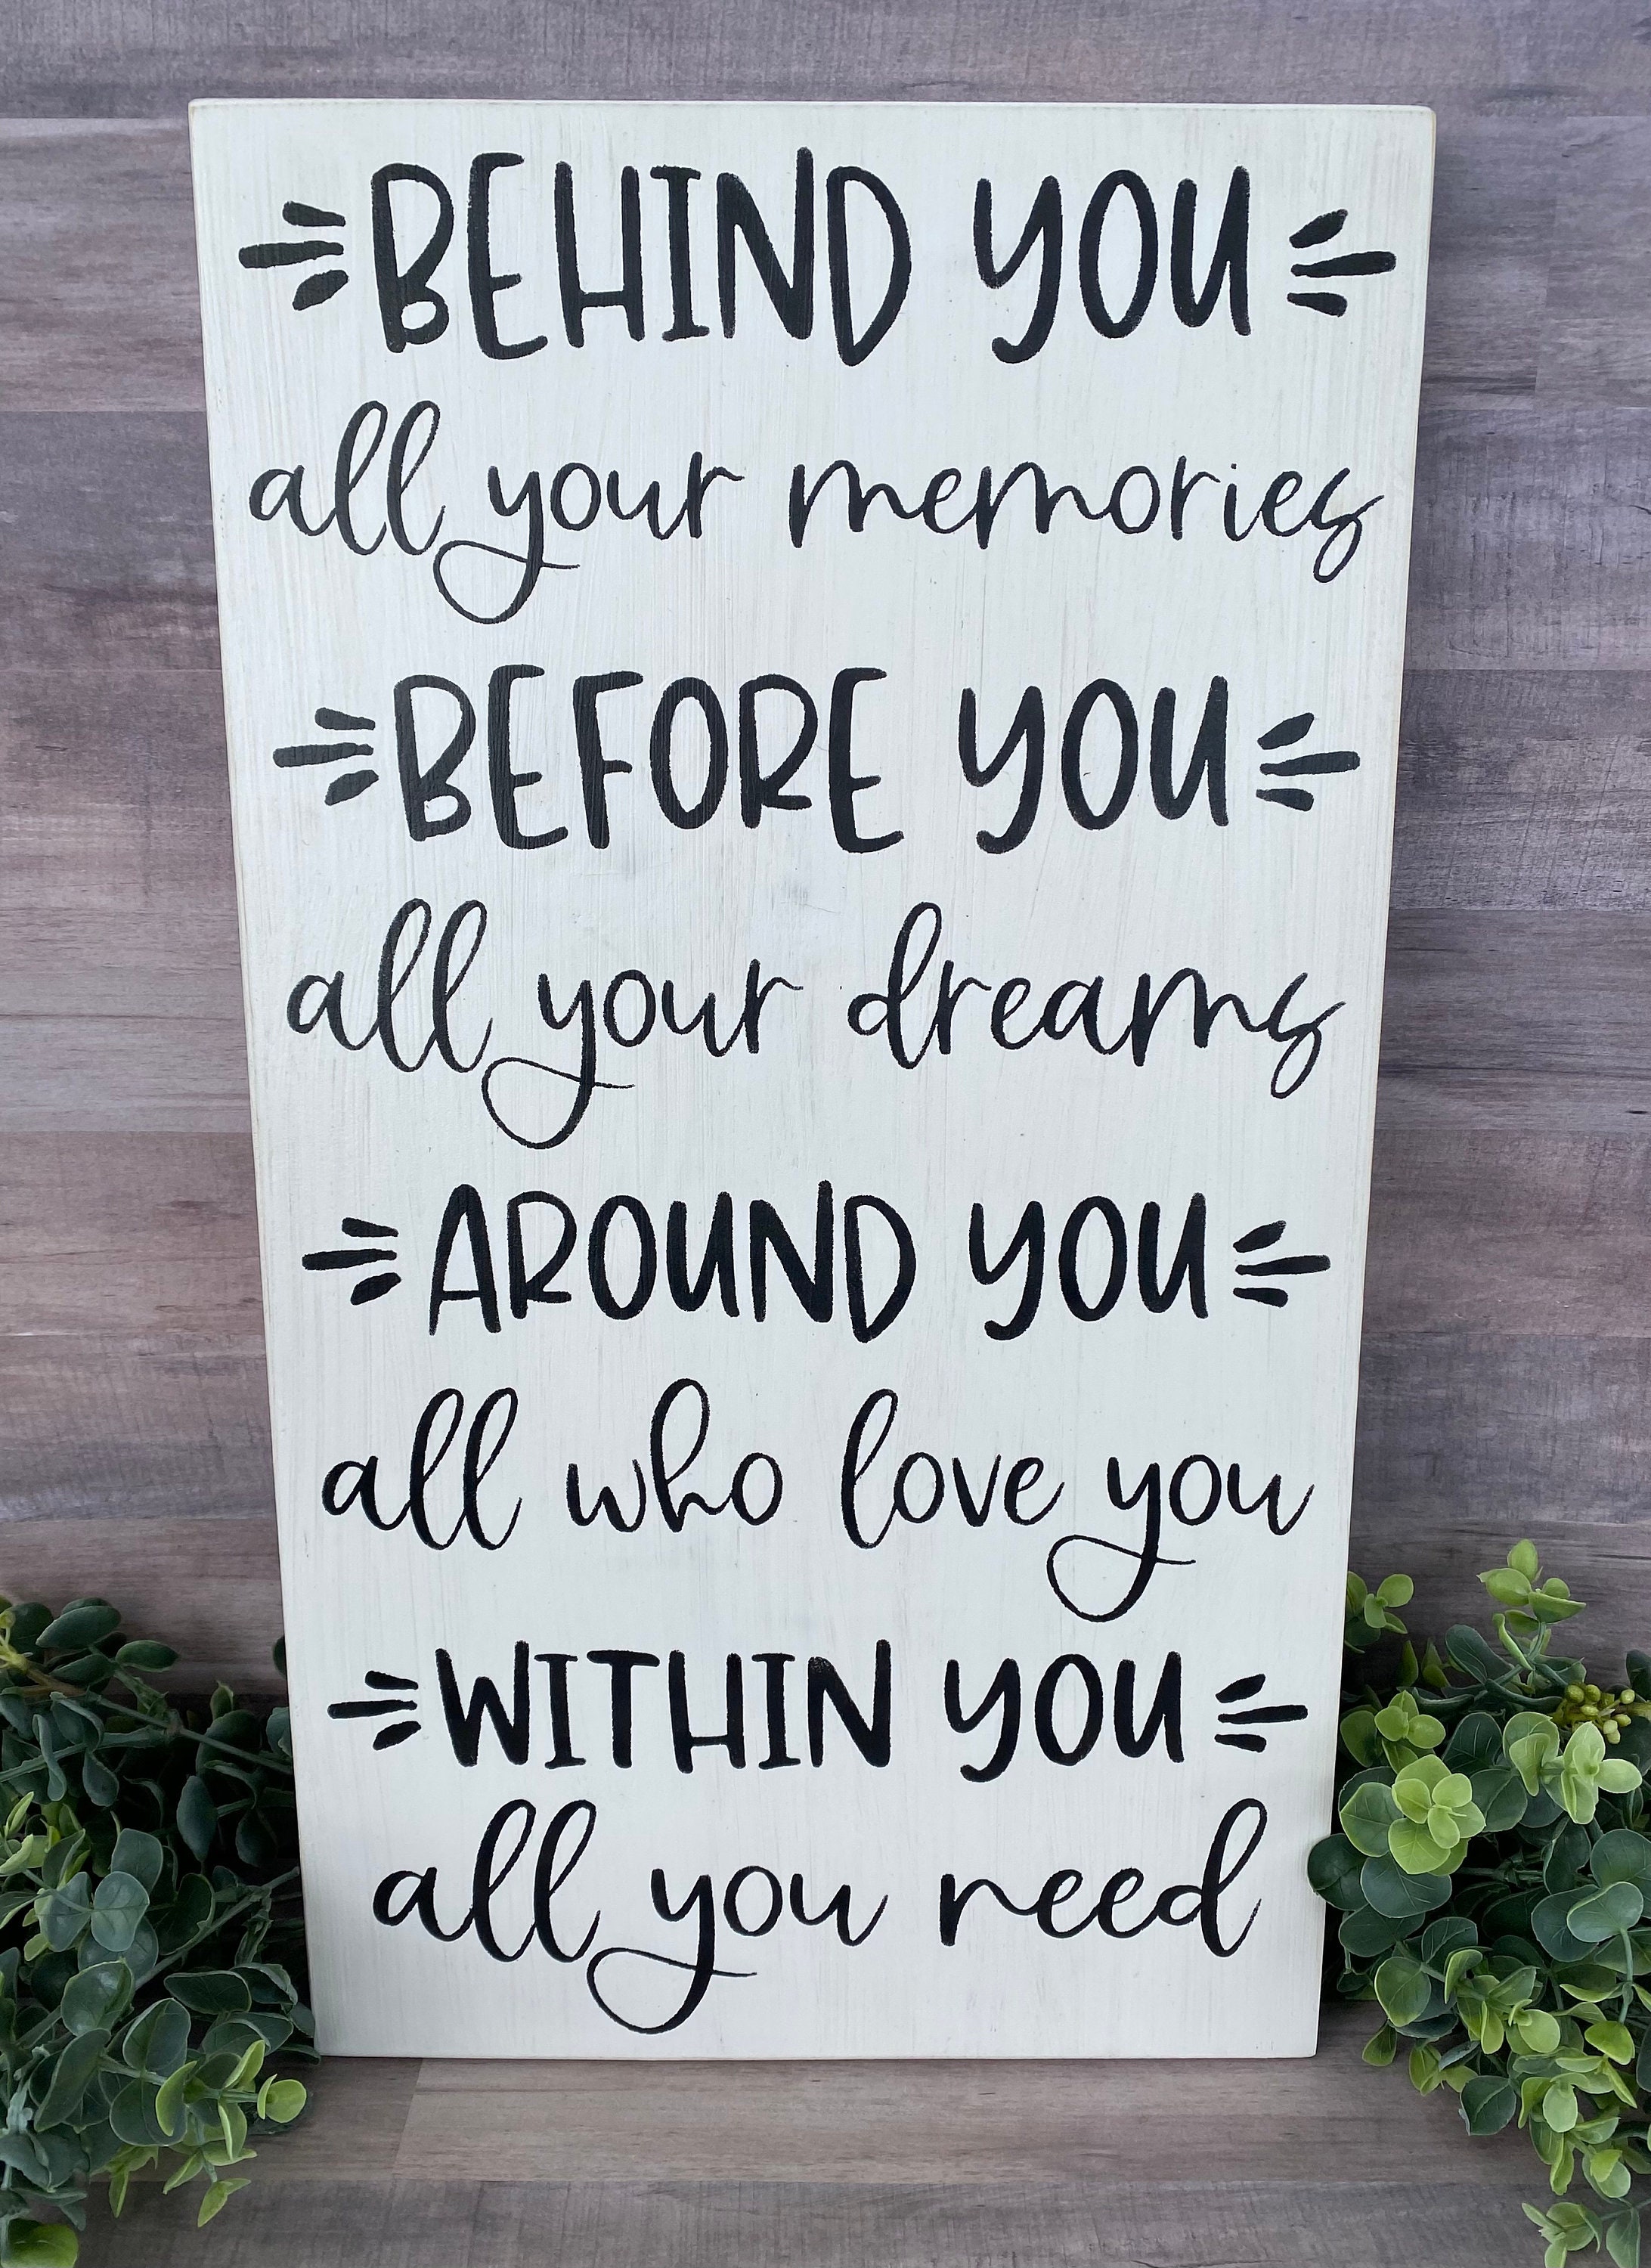 BEHIND YOU
all your memories
BEFORE YOU
all your dreams
AROUND YOU
all who love you
WITHIN YOU
all you need